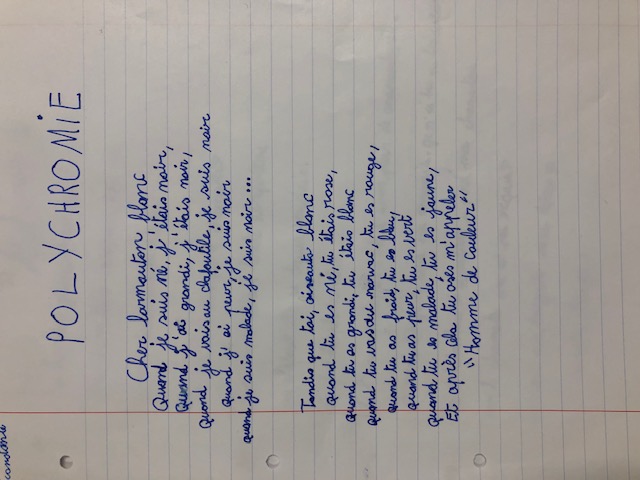 POLYCHROMIE
Cher larmauton blanc
Quand je suis né, j'étais noir,
Quand j'ai grandi, j'étais noir,
quand je vais au chafoutile, je suis noir
quand j'ai peur, je suis noir
quand je suis malade, je suis noir...
Tandis que toi, oiseaute blanc
quand tu es né, tu étais rose,
quand tu as grandi, tu étais blanc
quand tu vas du marvac, tu es rouge,
quand tu as froid, tu es bleu,
quand tu as peur, tu es vert
quand tu es malade, tu es jaune,
Et après cela tu oses m'appeler
"Homme de Couleur"